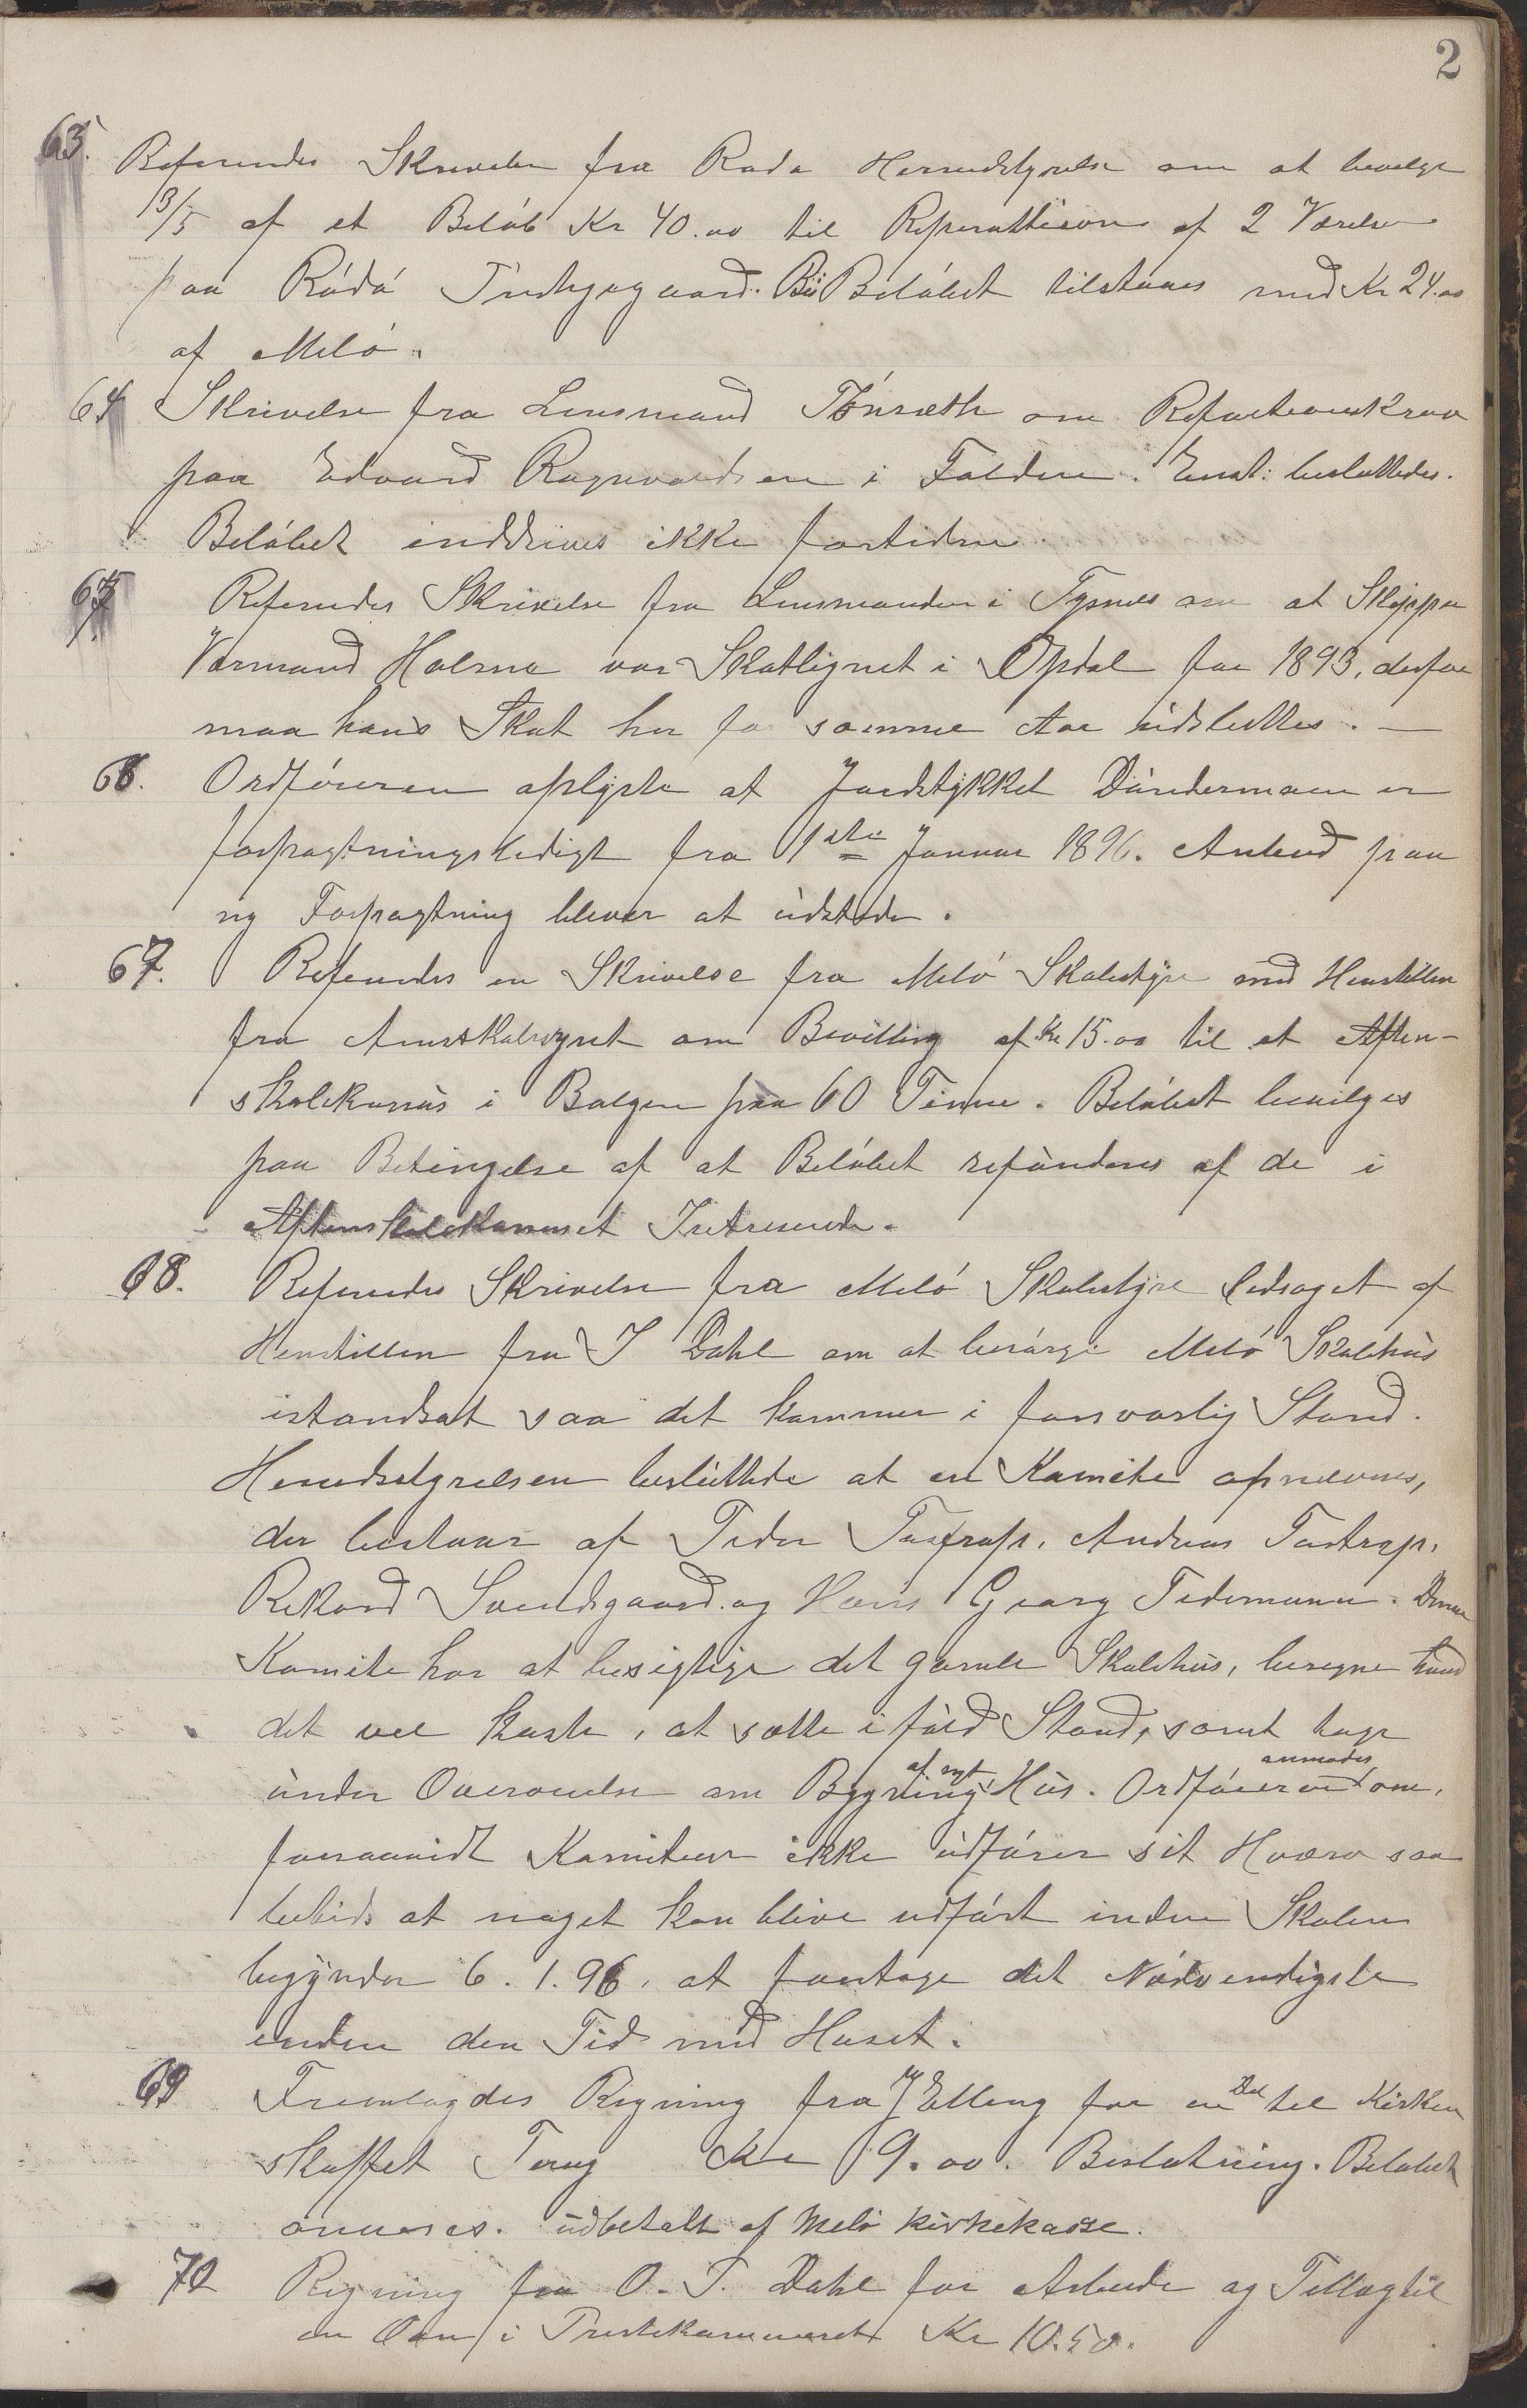 2
63. Refereredes Skrivelse fra Rødø Herredstyrelse om at bevilge
13/5 af et Beløb Kr 40.00 til Reperattison af 2 Værelser
paa Rødø Tinghjegaard. Beløbet tilstaaes med Kr 24.00
af Melø.
64 Skrivelse fra Lensmand Tönseth om Refactionskrav
paa Edvard Ragnvaldsen i Folden. Enst: besluttedes.
Beløbet inddrives ikke fortiden
65 Refereredes Skrivelse fra Lensmanden i Tysnes om at Skipper
Värmand Holsmo var Skatlignet i Opdal for 1893, derfor
maa hans Skat her for samme Aar udslettes. —
66. Ordføreren oplyste at Jordstykket Döndermoen er
forpagtningsledigt fra 1ste Januar 1896. Anbud paa
ny Forpagtning bliver at udstede.
67. Refereredes en Skrivelse fra Melø Skolestyre med Henstillen
fra Amtskolestyret om Bevilling af Kr 15.00 til et Aften-
skolekursus i Bolgen paa 60 Timer. Beløbet bevilges
paa Betingelse af at Beløbet refunderes af de i
Aftenskolekurset Intreserede.
68. Refereredes Skrivelse fra Melø Skolestyre ledsaget af
Henstillen fra J Dahl om at besørge Melø Skolehus
istandsat saa det kommer i forsvarlig Stand.
Herredsstyrelsen besluttede at en Komite opnevnes,
der bestaar af Peder Tostrup, Andreas Tostrup,
Rikard Svendsgaard og Hans Georg Tidemann. Denne
Komite har at besigtige det gamle Skolehus, beregne hvad
det vel koste, at sætte i fuld Stand, samt tage
under Overveielse om Bygning af nyt Hus. Ordføreren anmodes om,
forsaavidt Komiteen ikke udfører sit Hværv saa
betids at noget kan blive udført inden Skolen
begynder 6.1.96, at foretage det Nødvendigste
inden den Tid med Huset.
69 Fremlagdes Regning fra J Elling for en Del til Kirken
skaffet Torug Kr 9.00. Beslutning. Beløbet
anvises. udbetalt af Melø kirkekasse.
70 Regning fra O. T. Dahl for Arbeide og Tillæg til
en Ovn i Prestekammeret Kr 10.50.